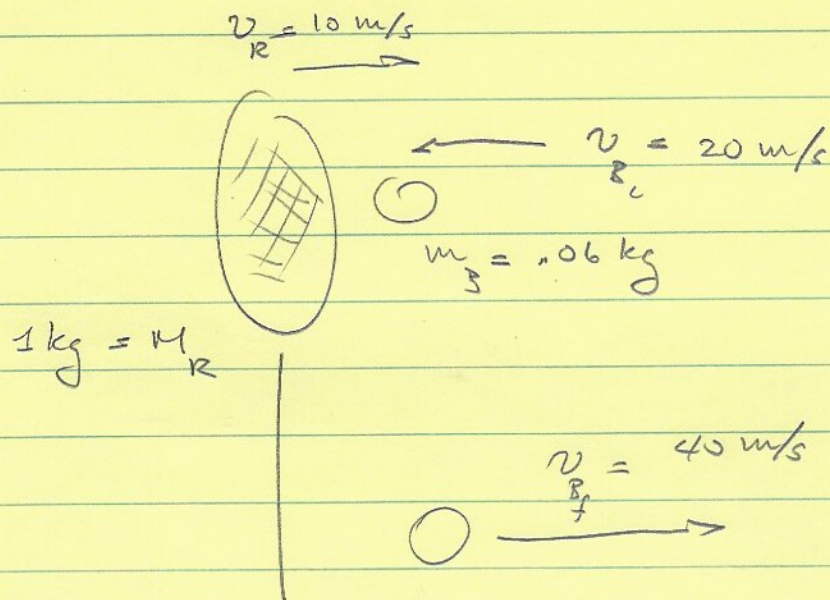 v_R = 10 m/s
v_Bi = 20 m/s
m_B = .06 kg
1 kg = M_R
v_Bf = 40 m/s